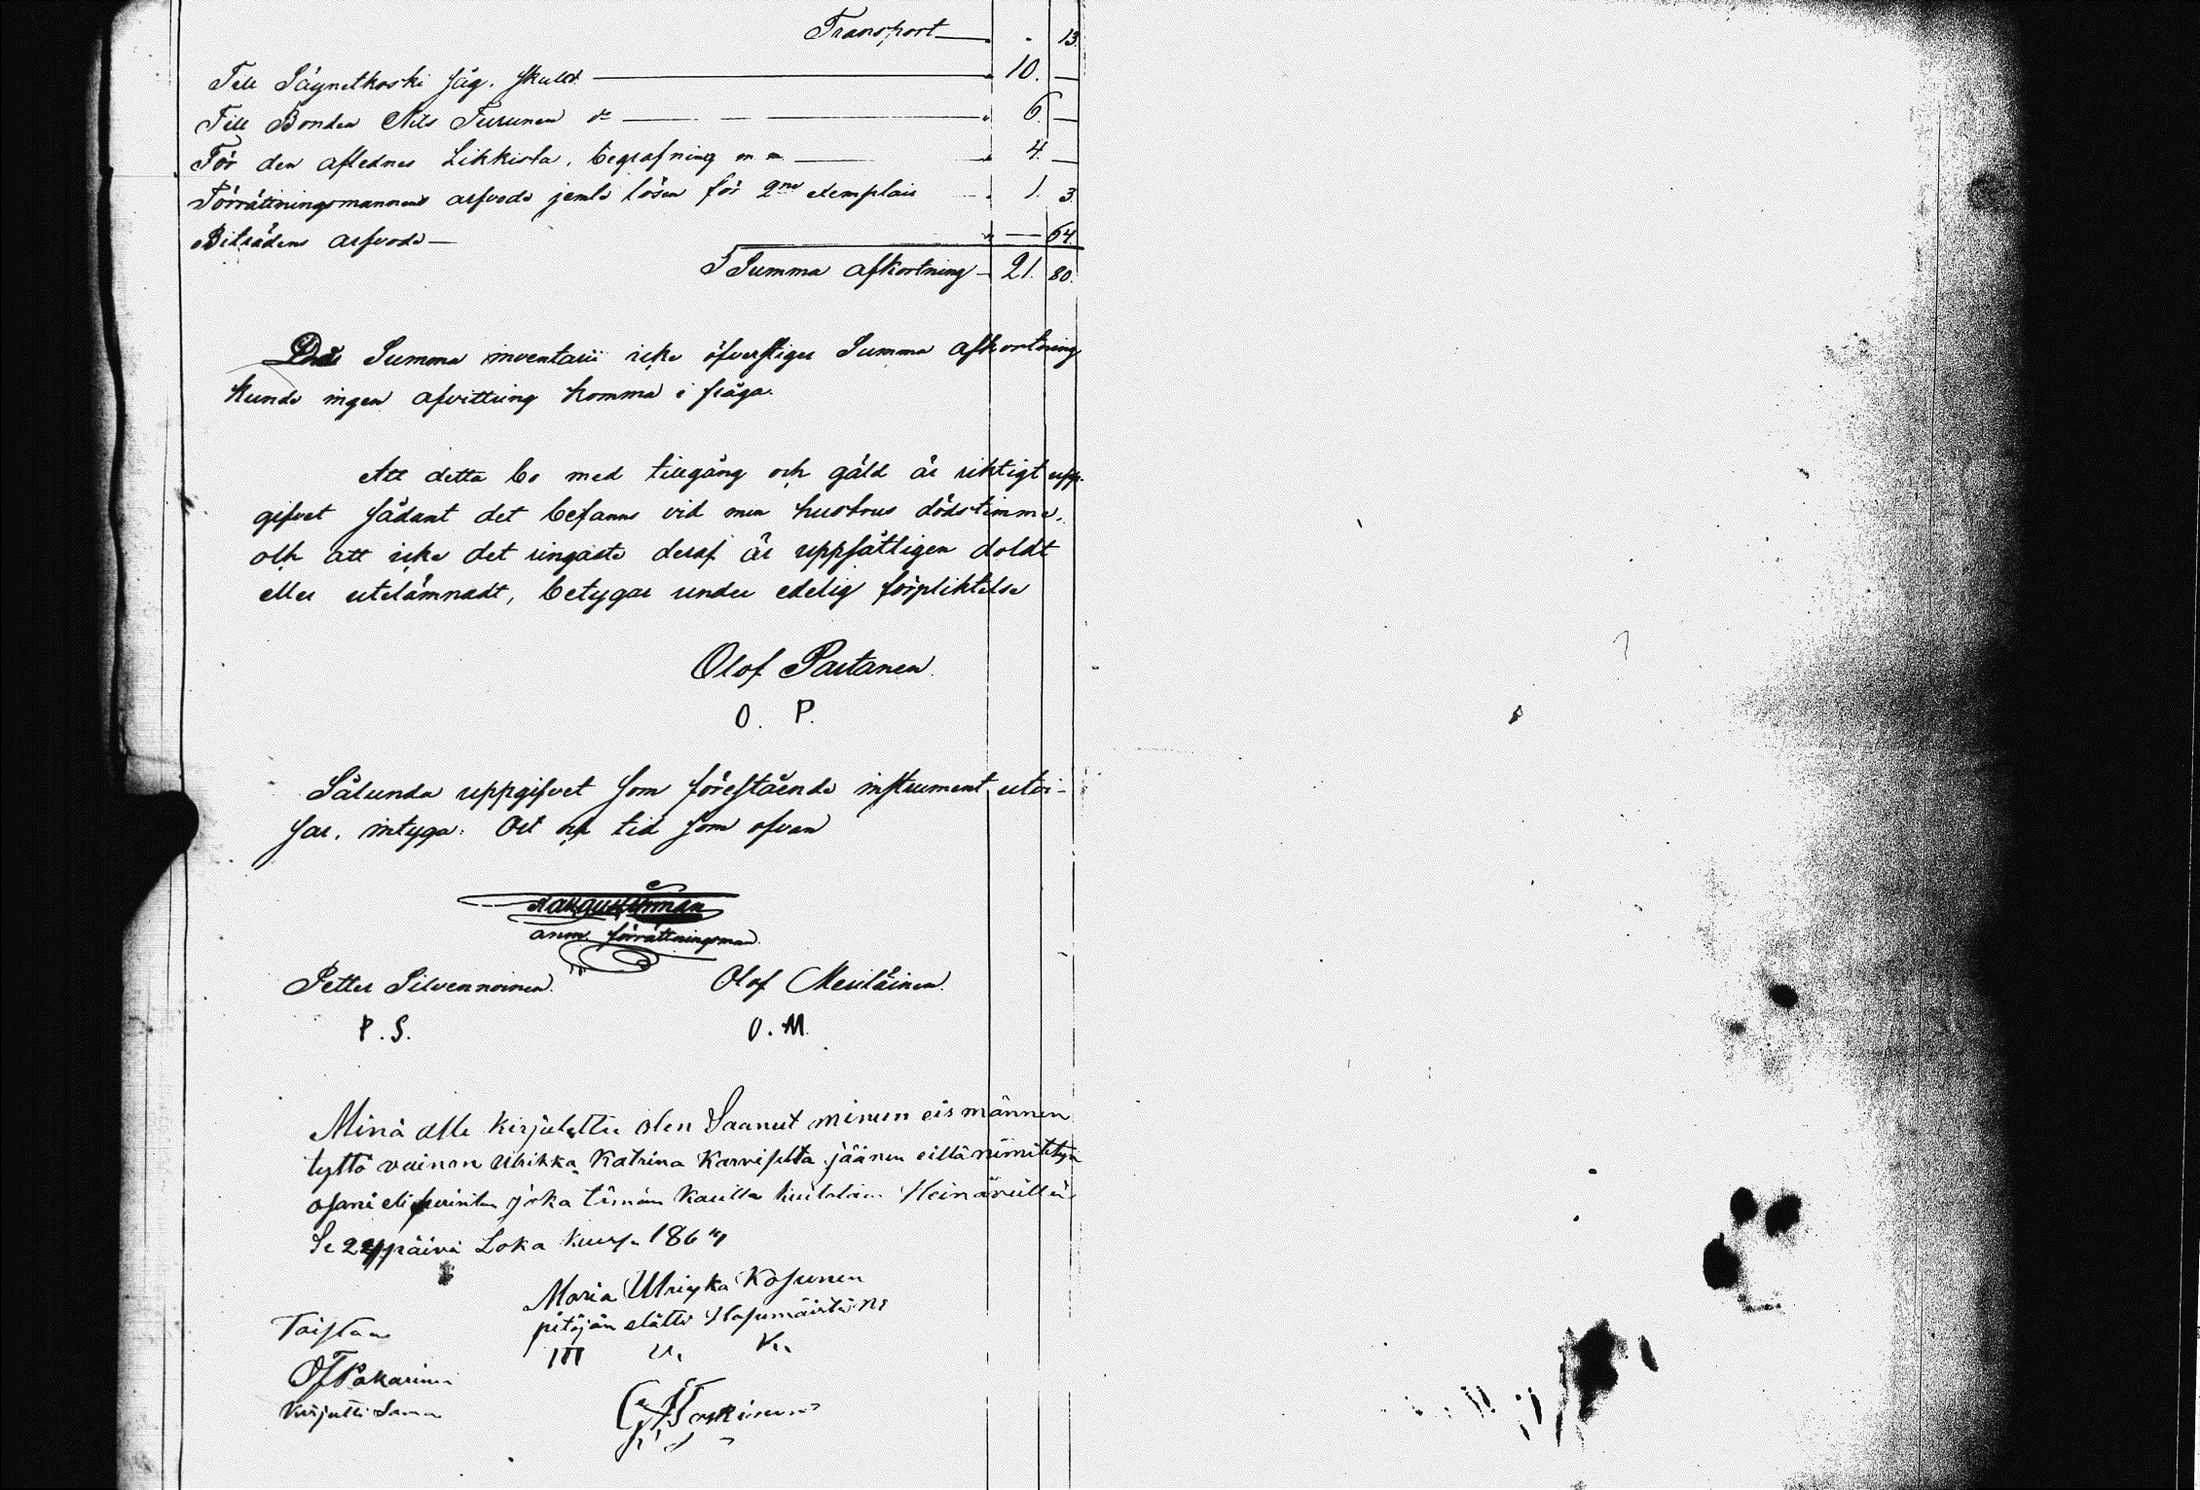 Transport — " . 13.
Till Säynetkoski såg. skuld — " 10. —
Till Bonden Nils Turunen d:o — " 6. —
För den aflednes Likkista, begrafning m m — " 4. —
Förrättningsmannens arfvode jemte lösen för 2ne exemplair — " 1. 3.
Biträdens arfvode — " — 64.
Summa afkortning — 21. 80.
Då Summa inventarii icke öfverstiger Summa afkortning
kunde ingen afvittring komma i fråga.
Att detta bo med tillgång och gäld är riktigt upp-
gifvet sådant det befanns vid min hustrus dödstimme,
och att icke det ringaste deraf är uppsåtligen doldt
eller utelämnadt, betygar under edelig förpliktelse
Olof Partanen.
O. P.
Sålunda uppgifvet som förestående instrument utvi-
sar, intyga: Ort och tid som ofvan
anm. förrättningsman.
Petter Silvennoinen. Olof Meriläinen.
P. S. O. M.
Minä alle kirjutettu olen Saanut minun eis männen
tyttö vainan Ulrikka Katrina Karvifelta jäänen eillä nimitetyn
osani eli perintön joka tämän kautta kuitataan Heinävedellä
Se päivä Loka kuus. 1867
Maria Ulriyka Kosunen
pitäjän elätti
Toistaa
M U. K.
O Pakarinen
Kirjutti Saman